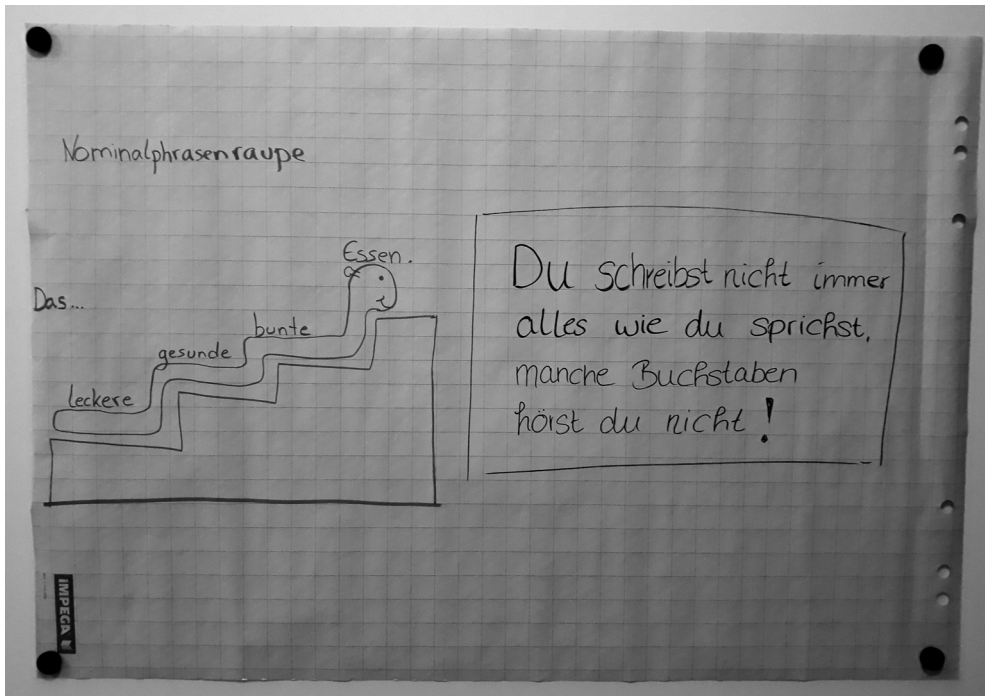 Nominalphrasenraupe
Das...
leckere
gesunde
bunte
Essen.
Du schreibst nicht immer
alles wie du sprichst,
manche Buchstaben
hörst du nicht!
IMPEGA